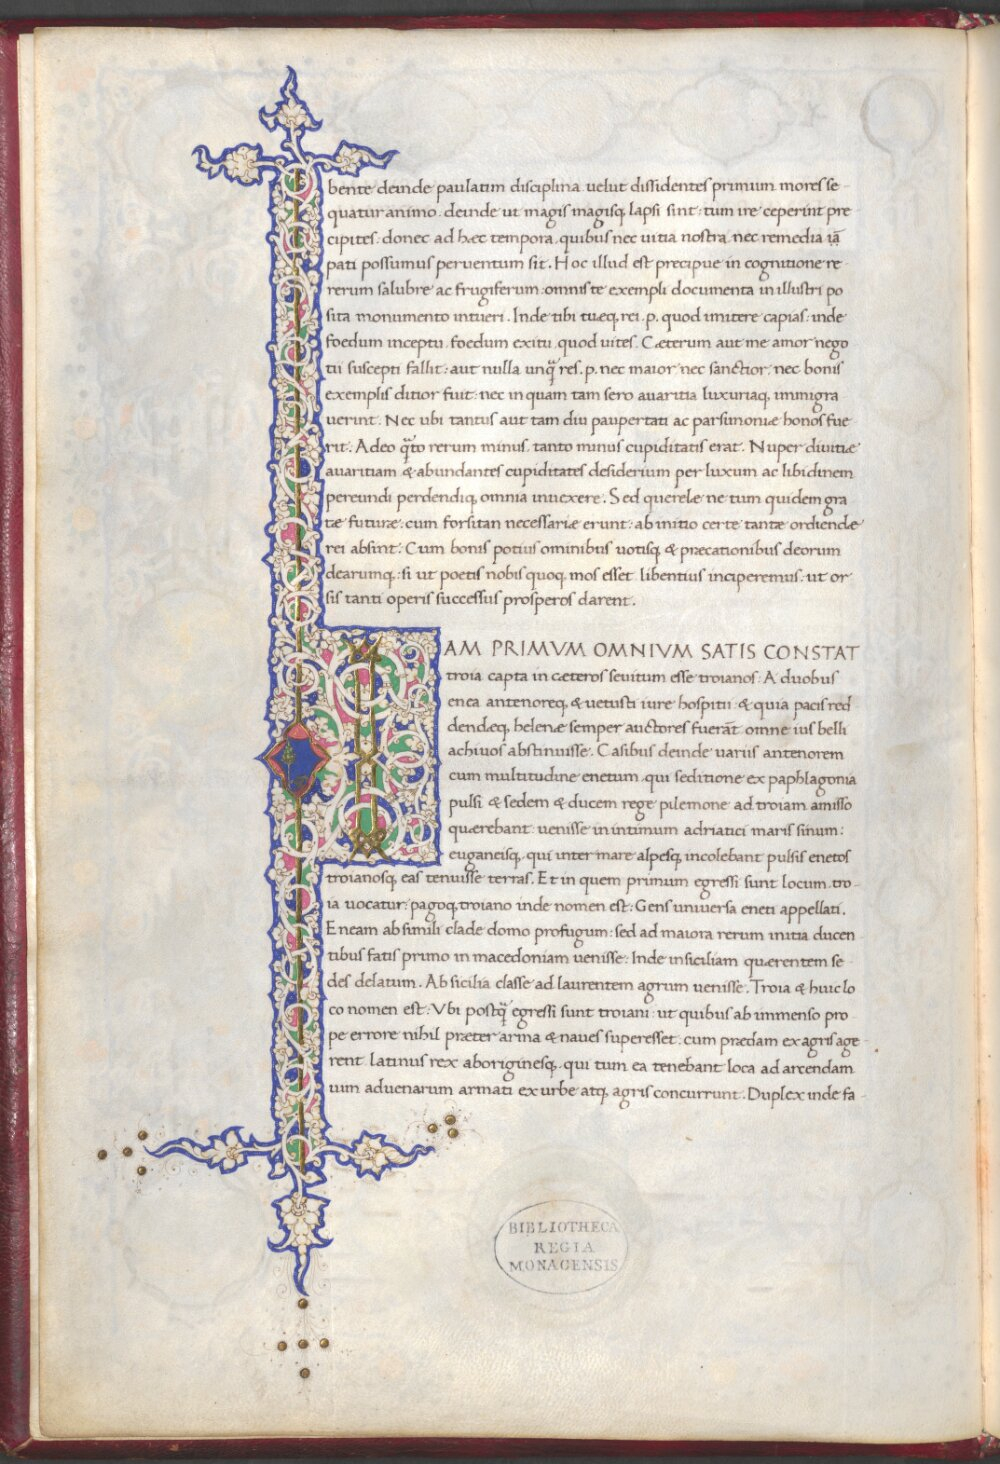 bente deinde paulatim disciplina velut dissidentes primum mores se
quatur animo. deinde ut magis magisq; lapsi sint: tum ire ceperint pre
cipites. donec ad hæc tempora, quibus nec vitia nostra, nec remedia iā
pati possumus perventum sit. Hoc illud est precipue in cognitione re
rerum salubre ac frugiferum: omnis te exempli documenta in illustri po
sita monumento intueri. Inde tibi tuæq; rei .p. quod imitere capias: inde
foedum inceptu, foedum exitu, quod vites. Cæterum aut me amor nego
tii suscepti fallit: aut nulla unq̄ res .p. nec maior, nec sanctior, nec bonis
exemplis ditior fuit: nec in quam tam sero avaritia luxuriaq; immigra
verint. Nec ubi tantus aut tam diu paupertati ac parsimoniæ honos fue
rit. Adeo q̄to rerum minus, tanto minus cupiditatis erat. Nuper divitiæ
avaritiam & abundantes cupiditates desiderium per luxum ac libidinem
pereundi perdendiq; omnia invexere. Sed querelæ ne tum quidem gra
tæ futuræ: cum forsitan necessariæ erunt: ab initio certe tantæ ordiendæ
rei absint: Cum bonis potius ominibus votisq; & præcationibus deorum
dearumq; si ut poetis nobis quoq; mos esset libentius inciperemus: ut or
sis tanti operis successus prosperos darent.
IAM PRIMVM OMNIVM SATIS CONSTAT
troia capta in cæteros sevitum esse troianos: A duobus
enea antenoreq; & vetusti iure hospitii & quia pacis red
dendæq; helenæ semper auctores fuerāt omne ius belli
achivos abstinuisse. Casibus deinde variis antenorem
cum multitudine enetum, qui seditione ex paphlagonia
pulsi & sedem & ducem rege pilemone ad troiam amisso
quærebant: venisse in intimum adriatici maris sinum:
euganeisq; qui inter mare alpesq; incolebant pulsis enetos
troianosq; eas tenuisse terras. Et in quem primum egressi sunt locum tro
ia vocatur: pagoq; troiano inde nomen est: Gens universa eneti appellati.
Eneam ab simili clade domo profugum: sed ad maiora rerum initia ducen
tibus fatis primo in macedoniam venisse: Inde in siciliam quærentem se
des delatum. Ab sicilia classe ad laurentem agrum venisse. Troia & huic lo
co nomen est: Vbi postq̄ egressi sunt troiani: ut quibus ab immenso pro
pe errore nihil præter arma & naves superesset: cum prædam ex agris age
rent latinus rex aboriginesq; qui tum ea tenebant loca ad arcendam
vim advenarum armati ex urbe atq; agris concurrunt. Duplex inde fa
BIBLIOTHECA
REGIA
MONACENSIS